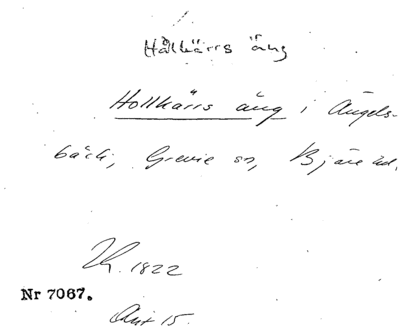 Hålkärrs äng
Hollkärrs äng i Ängels-
bäck, Grevie sn, Bjäre hd.
1822
Nr 7067.
Ant 15.